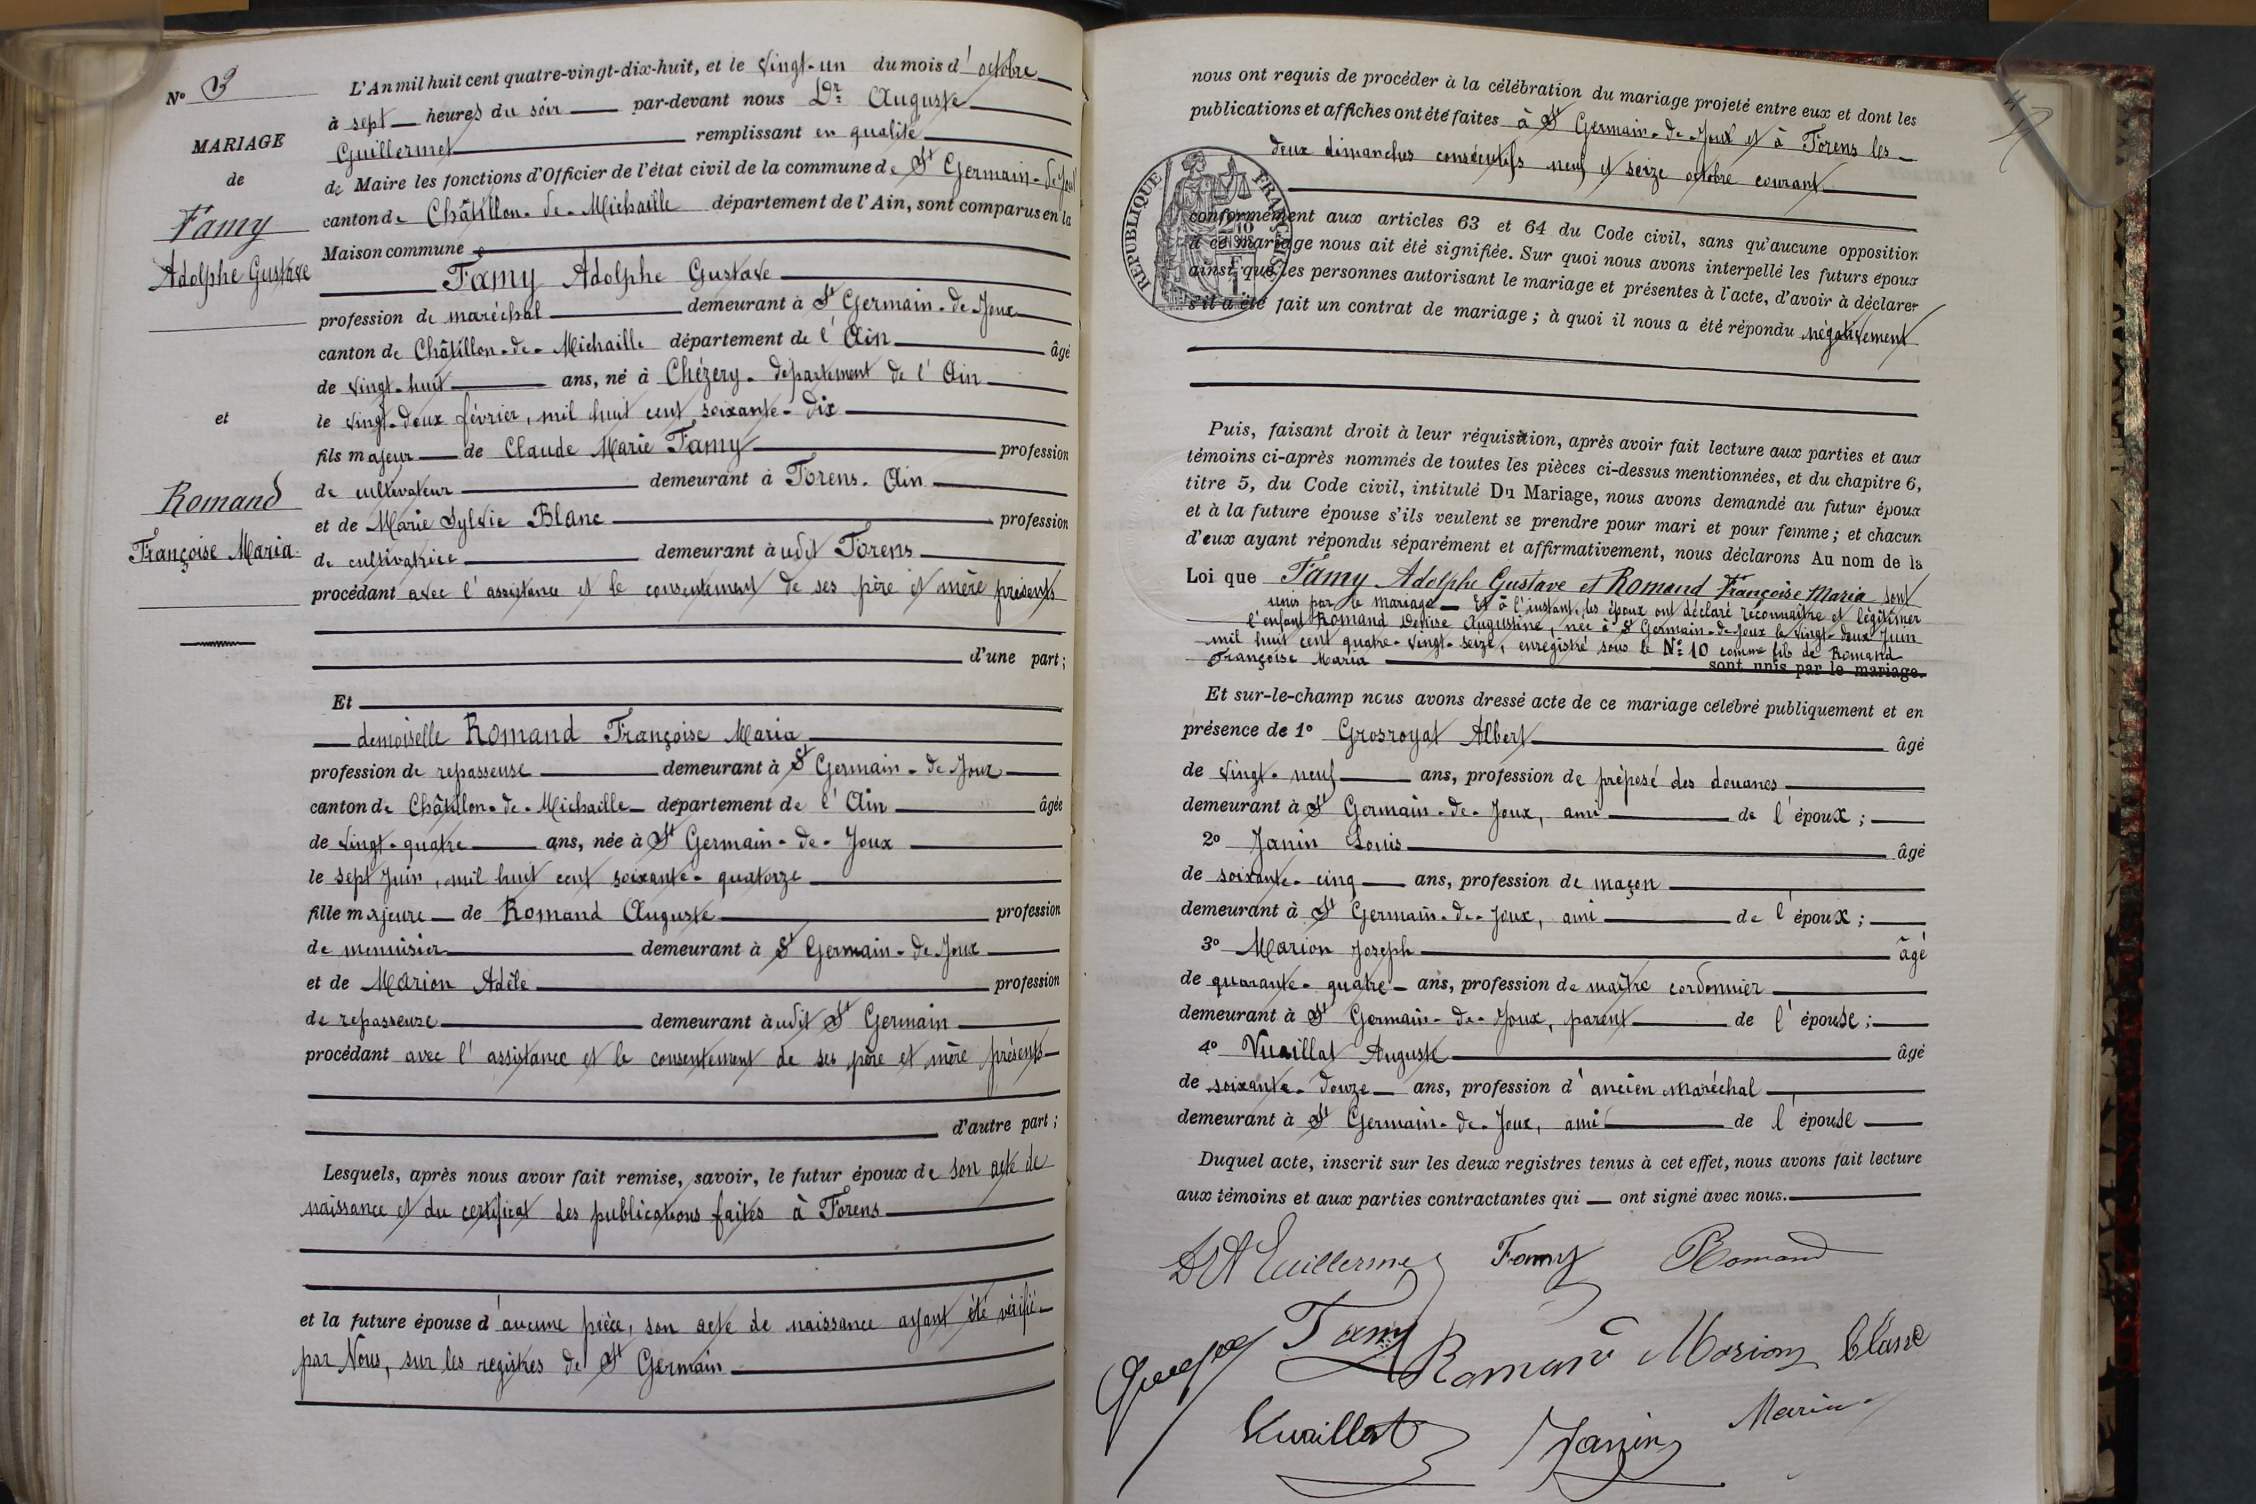 N° 3
MARIAGE
de
Famy
Adolphe Gustave
et
Romand
Françoise Maria
L'An mil huit cent quatre-vingt-dix-huit, et le vingt-un du mois d'octobre
à sept heures du soir par-devant nous Dr Auguste
Guillermet remplissant en qualité
de Maire les fonctions d'Officier de l'état civil de la commune de St Germain-de-Joux
canton de Châtillon-de-Michaille département de l'Ain, sont comparus en la
Maison commune
Famy Adolphe Gustave
profession de maréchal demeurant à St Germain-de-Joux
canton de Châtillon-de-Michaille département de l'Ain âgé
de vingt-huit ans, né à Chézery-département de l'Ain
le vingt-deux février, mil huit cent soixante-dix
fils majeur de Claude Marie Famy profession
de cultivateur demeurant à Forens. Ain
et de Marie Sylvie Blanc profession
de cultivatrice demeurant àudit Forens
procédant avec l'assistance et le consentement de ses père et mère présents
d'une part;
Et
demoiselle Romand Françoise Maria
profession de repasseuse demeurant à St Germain-de-Joux
canton de Châtillon-de-Michaille département de l'Ain âgée
de vingt-quatre ans, née à St Germain-de-Joux
le sept Juin, mil huit cent soixante-quatorze
fille majeure de Romand Auguste profession
de menuisier demeurant à St Germain-de-Joux
et de Marion Adèle profession
de repasseuse demeurant àudit St Germain
procédant avec l'assistance et le consentement de ses père et mère présents
d'autre part;
Lesquels, après nous avoir fait remise, savoir, le futur époux de son acte de
naissance et du certificat des publications faites à Forens
et la future épouse d'aucune pièce, son acte de naissance ayant été vérifié
par Nous, sur les registres de St Germain
nous ont requis de procéder à la célébration du mariage projeté entre eux et dont les
publications et affiches ont été faites à St Germain-de-Joux et à Forens les
deux dimanches consécutifs neuf et seize octobre courant
RÉPUBLIQUE FRANÇAISE
conformément aux articles 63 et 64 du Code civil, sans qu'aucune opposition
à ce mariage nous ait été signifiée. Sur quoi nous avons interpellé les futurs époux
ainsi que les personnes autorisant le mariage et présentes à l'acte, d'avoir à déclarer
s'il a été fait un contrat de mariage; à quoi il nous a été répondu négativement
Puis, faisant droit à leur réquisition, après avoir fait lecture aux parties et aux
témoins ci-après nommés de toutes les pièces ci-dessus mentionnées, et du chapitre 6,
titre 5, du Code civil, intitulé Du Mariage, nous avons demandé au futur époux
et à la future épouse s'ils veulent se prendre pour mari et pour femme; et chacun
d'eux ayant répondu séparément et affirmativement, nous déclarons Au nom de la
Loi que Famy Adolphe Gustave et Romand Françoise Maria sont
unis par le mariage - Et à l'instant, les époux ont déclaré reconnaître et légitimer
l'enfant Romand Denise Augustine, née à St Germain-de-Joux le vingt-deux Juin
mil huit cent quatre-vingt-seize, enregistré sous le N° 10 comme fils de Romand
Françoise Maria
sont unis par le mariage.
Et sur-le-champ nous avons dressé acte de ce mariage célébré publiquement et en
présence de 1° Grosroyat Albert âgé
de vingt-neuf ans, profession de préposé des douanes
demeurant à St Germain-de-Joux, ami de l'époux;
2° Janin Louis âgé
de soixante-cinq ans, profession de maçon
demeurant à St Germain-de-Joux, ami de l'époux;
3° Marion Joseph âgé
de quarante-quatre ans, profession de maître cordonnier
demeurant à St Germain-de-Joux, parent de l'épouse;
4° Vuaillat Auguste âgé
de soixante-douze ans, profession d'ancien maréchal
demeurant à St Germain-de-Joux, ami de l'épouse
Duquel acte, inscrit sur les deux registres tenus à cet effet, nous avons fait lecture
aux témoins et aux parties contractantes qui ont signé avec nous.
Dr A Guillermet Famy Romand
Famy Romand Marion Blanc
Vuaillat Janin Marion